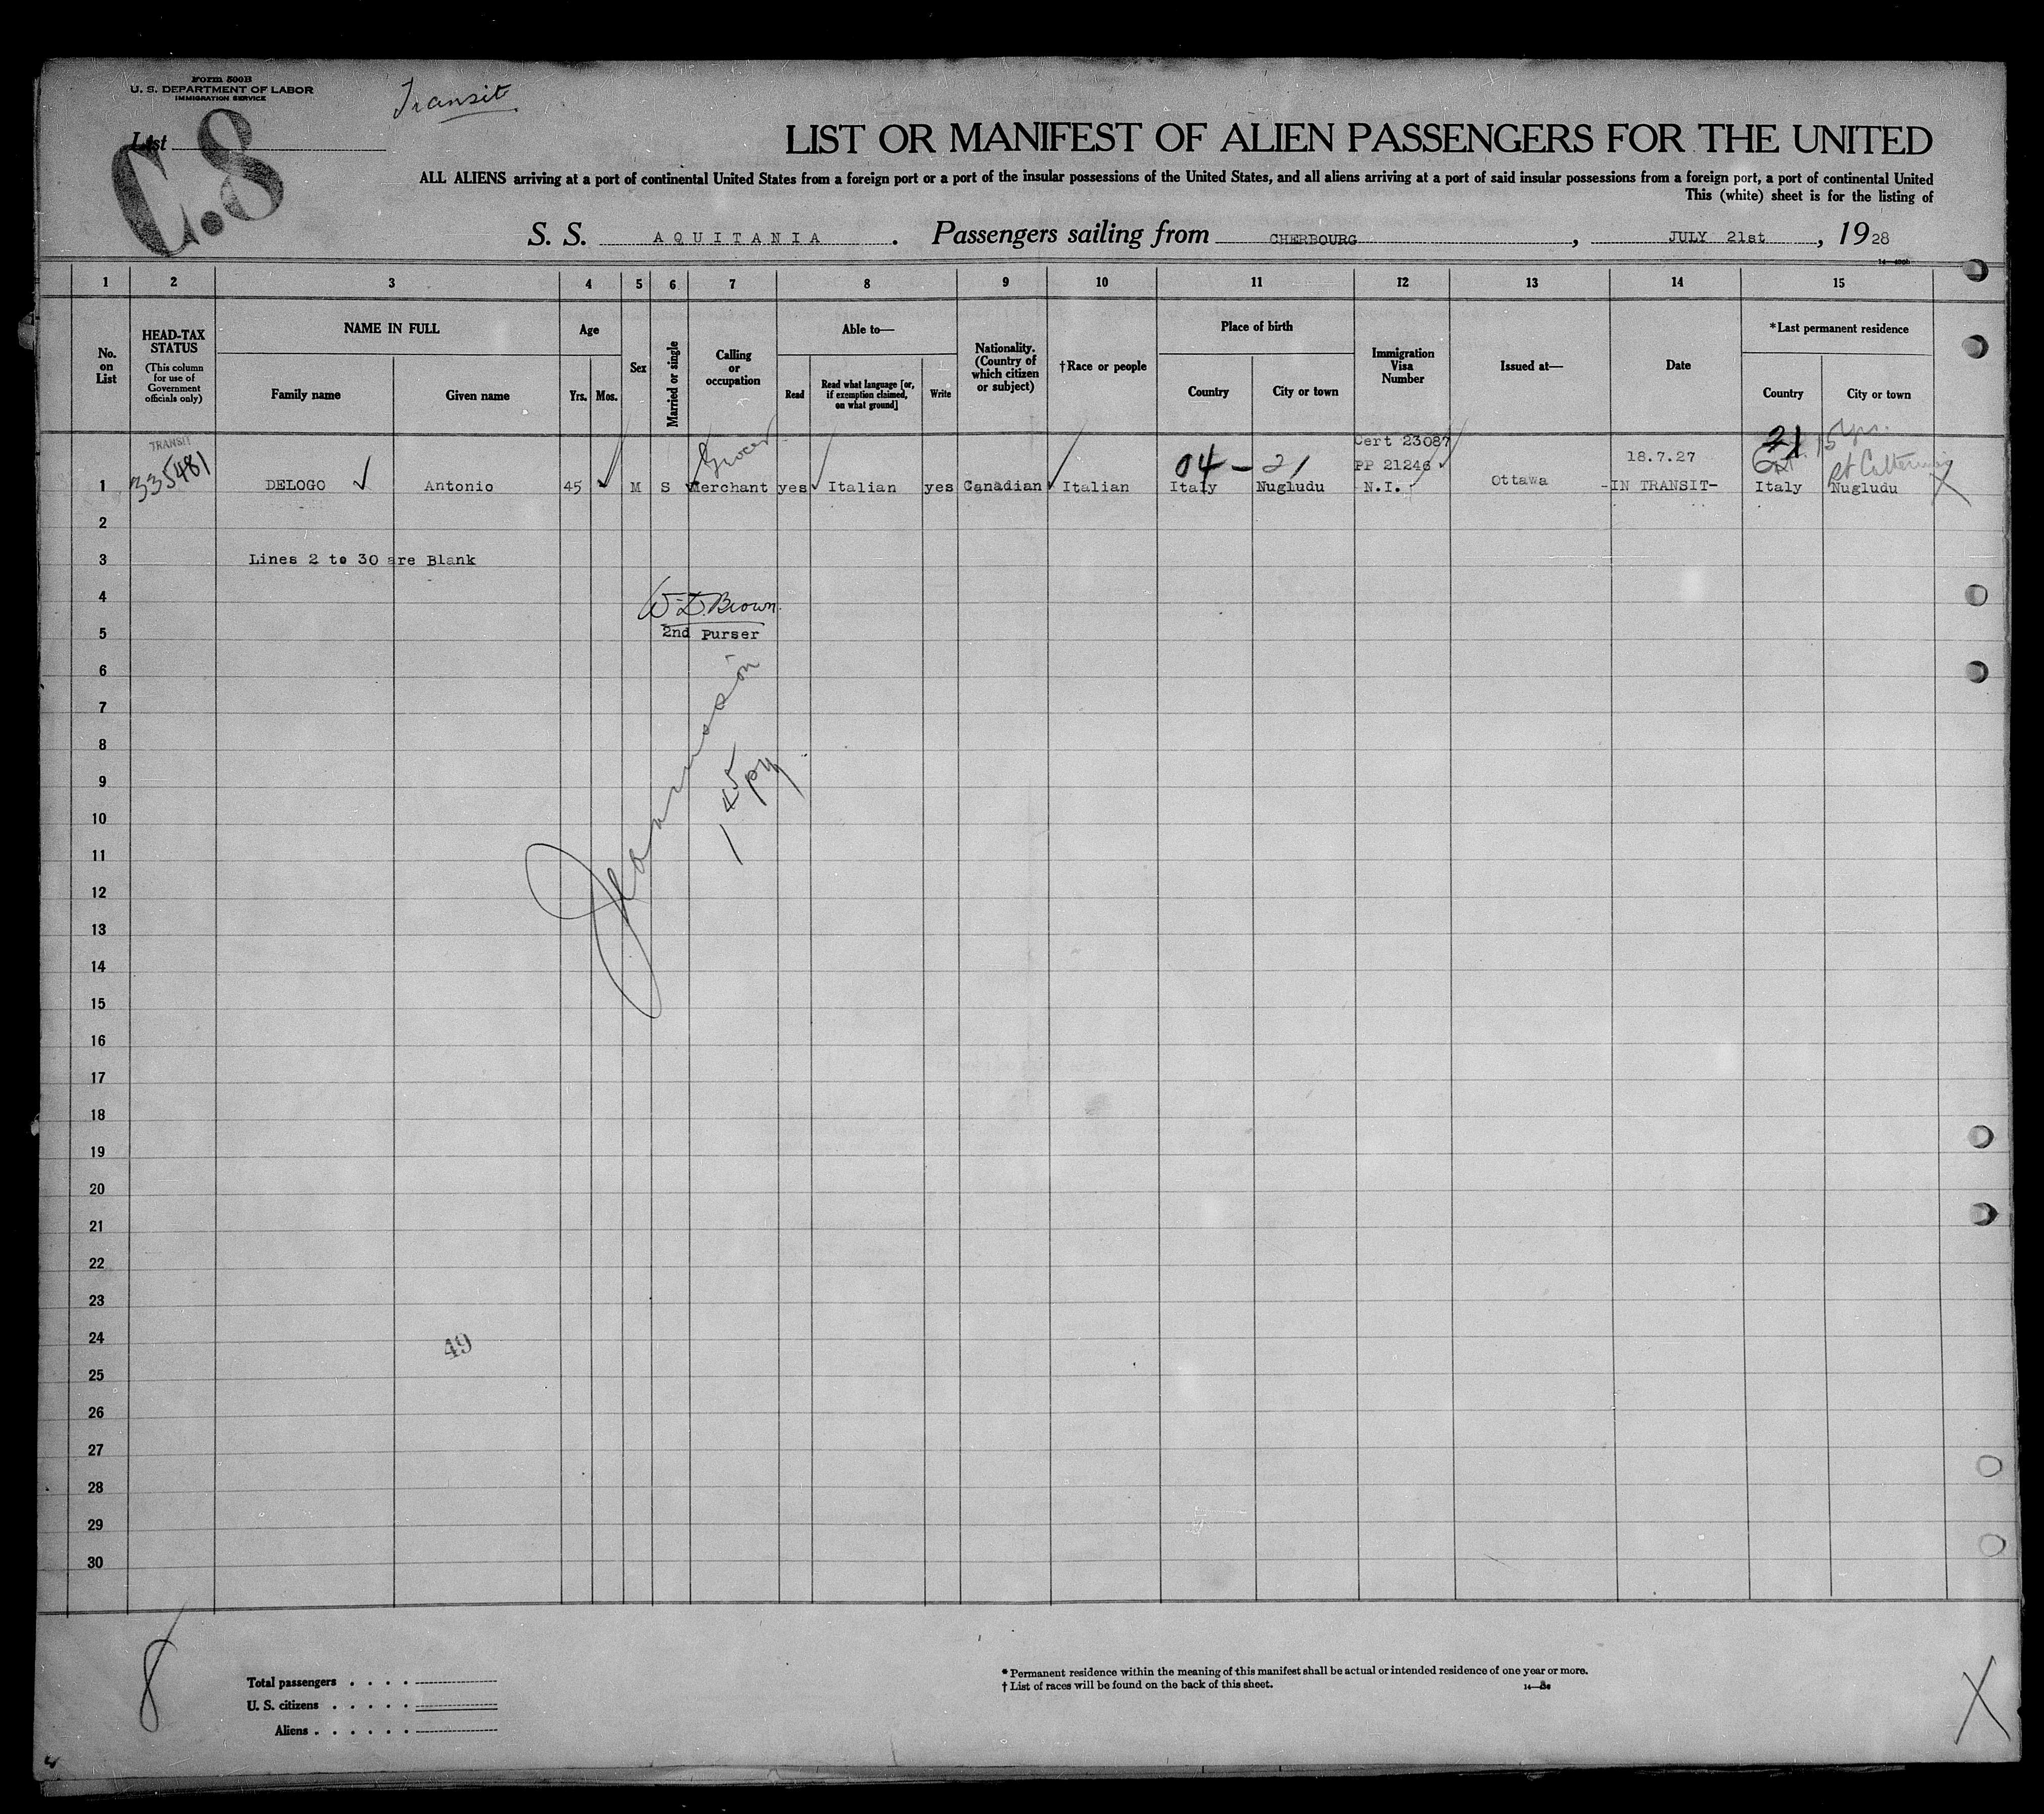 Form 500B
U. S. DEPARTMENT OF LABOR
IMMIGRATION SERVICE
Transit
List
C.8
LIST OR MANIFEST OF ALIEN PASSENGERS FOR THE UNITED
ALL ALIENS arriving at a port of continental United States from a foreign port or a port of the insular possessions of the United States, and all aliens arriving at a port of said insular possessions from a foreign port, a port of continental United
This (white) sheet is for the listing of
S. S. AQUITANIA . Passengers sailing from CHERBOURG , JULY 21st , 1928
1 2 3 4 5 6 7 8 9 10 11 12 13 14 15
No. on List
HEAD-TAX STATUS
(This column for use of Government officials only)
NAME IN FULL
Family name
Given name
Age
Yrs. Mos.
Sex
Married or single
Calling or occupation
Able to—
Read
Read what language [or, if exemption claimed, on what ground]
Write
Nationality. (Country of which citizen or subject)
†Race or people
Place of birth
Country
City or town
Immigration Visa Number
Issued at—
Date
*Last permanent residence
Country
City or town
TRANSIT
335481
Grocer
04 - 21
Cert 23087
PP 21246
18.7.27
21
15 yrs.
1 DELOGO Antonio 45 M S Merchant yes Italian yes Canadian Italian Italy Nugludu N.I. Ottawa -IN TRANSIT- Italy Nugludu X
2
3 Lines 2 to 30 are Blank
4 W. D. Brown.
5 2nd Purser
6
7
8
9
145 py
10
11
12
13
14
15
16
17
18
19
20
21
22
23
24
49
25
26
27
28
29
30
8
Total passengers . . . .
U. S. citizens . . . . .
Aliens . . . . . .
* Permanent residence within the meaning of this manifest shall be actual or intended residence of one year or more.
† List of races will be found on the back of this sheet.
X